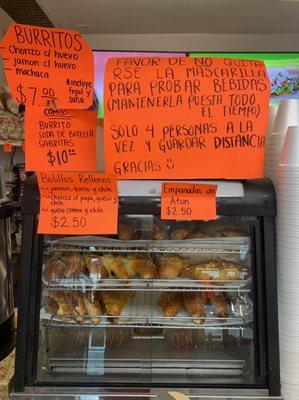 BURRITOS
- chorizo c/ huevo
- jamon c/ huevo
- machaca
*incluye
frijol y
salsa
$7.00
COMBO
BURRITO
SODA DE BOTELLA
SABRITAS
$10
FAVOR DE NO QUITA
RSE LA MASCARILLA
PARA PROBAR BEBIDAS
(MANTENERLA PUESTA TODO
EL TIEMPO)
SOLO 4 PERSONAS A LA
VEZ Y GUARDAR DISTANCIA
GRACIAS
Bolillos Rellenos
- jamon, queso y chile
- chorizo c/ papa, queso y
chile
- queso crema y chile
$2.50
Empanadas de
Atun
$2.50